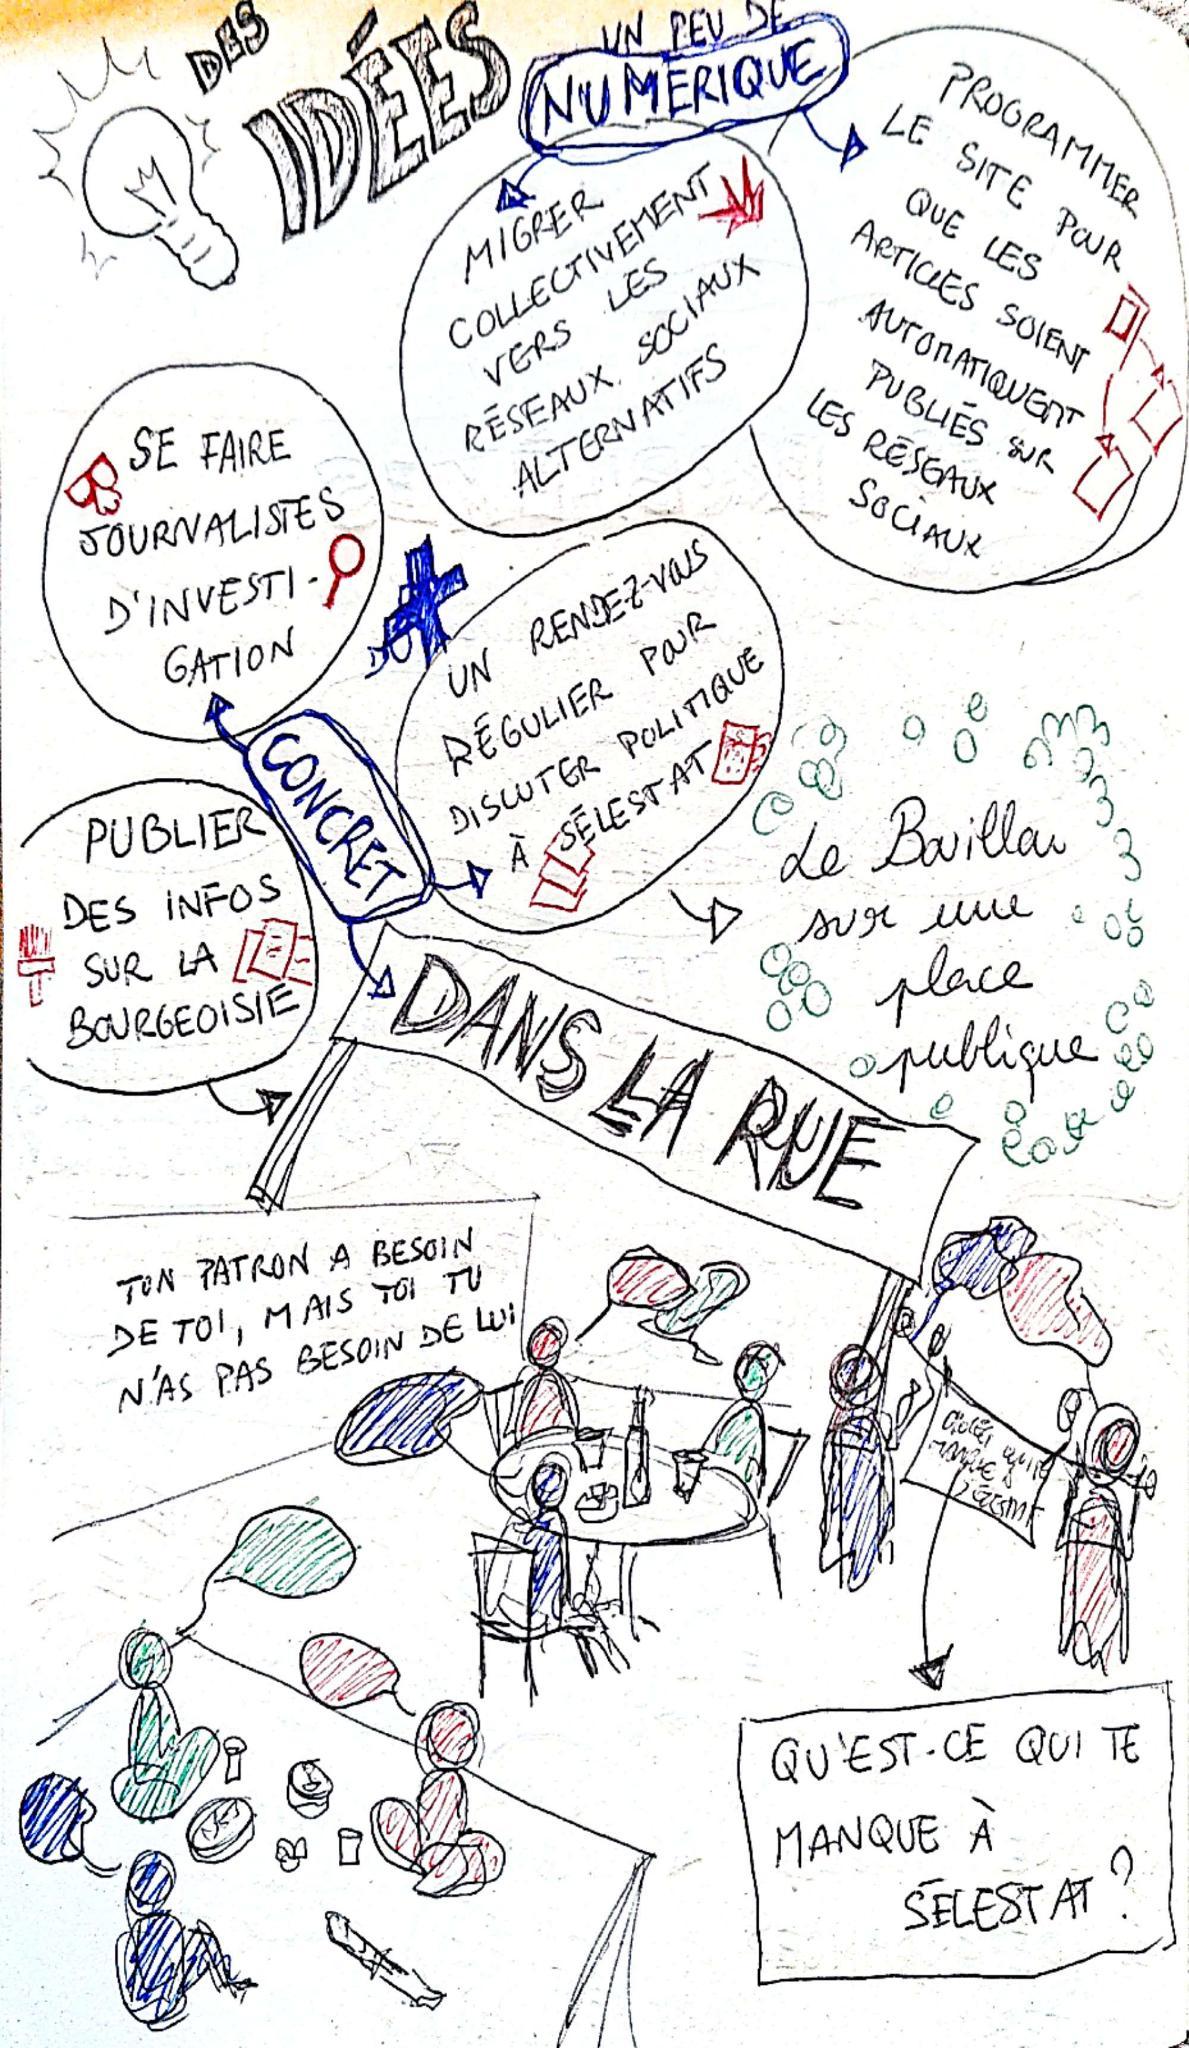 DES
IDÉES
UN PEU DE
NUMÉRIQUE
MIGRER
COLLECTIVEMENT
VERS LES
RÉSEAUX SOCIAUX
ALTERNATIFS
PROGRAMMER
LE SITE POUR
QUE LES
ARTICLES SOIENT
AUTOMATIQUEMENT
PUBLIÉS SUR
LES RÉSEAUX
SOCIAUX
SE FAIRE
JOURNALISTES
D'INVESTI-
GATION
DU
CONCRET
UN RENDEZ-VOUS
RÉGULIER POUR
DISCUTER POLITIQUE
À SÉLESTAT
PUBLIER
DES INFOS
SUR LA
BOURGEOISIE
Le Bouillon
sur une
place
publique
DANS LA RUE
TON PATRON A BESOIN
DE TOI, MAIS TOI TU
N'AS PAS BESOIN DE LUI
QU'EST-CE QUI TE
MANQUE À
SÉLESTAT ?